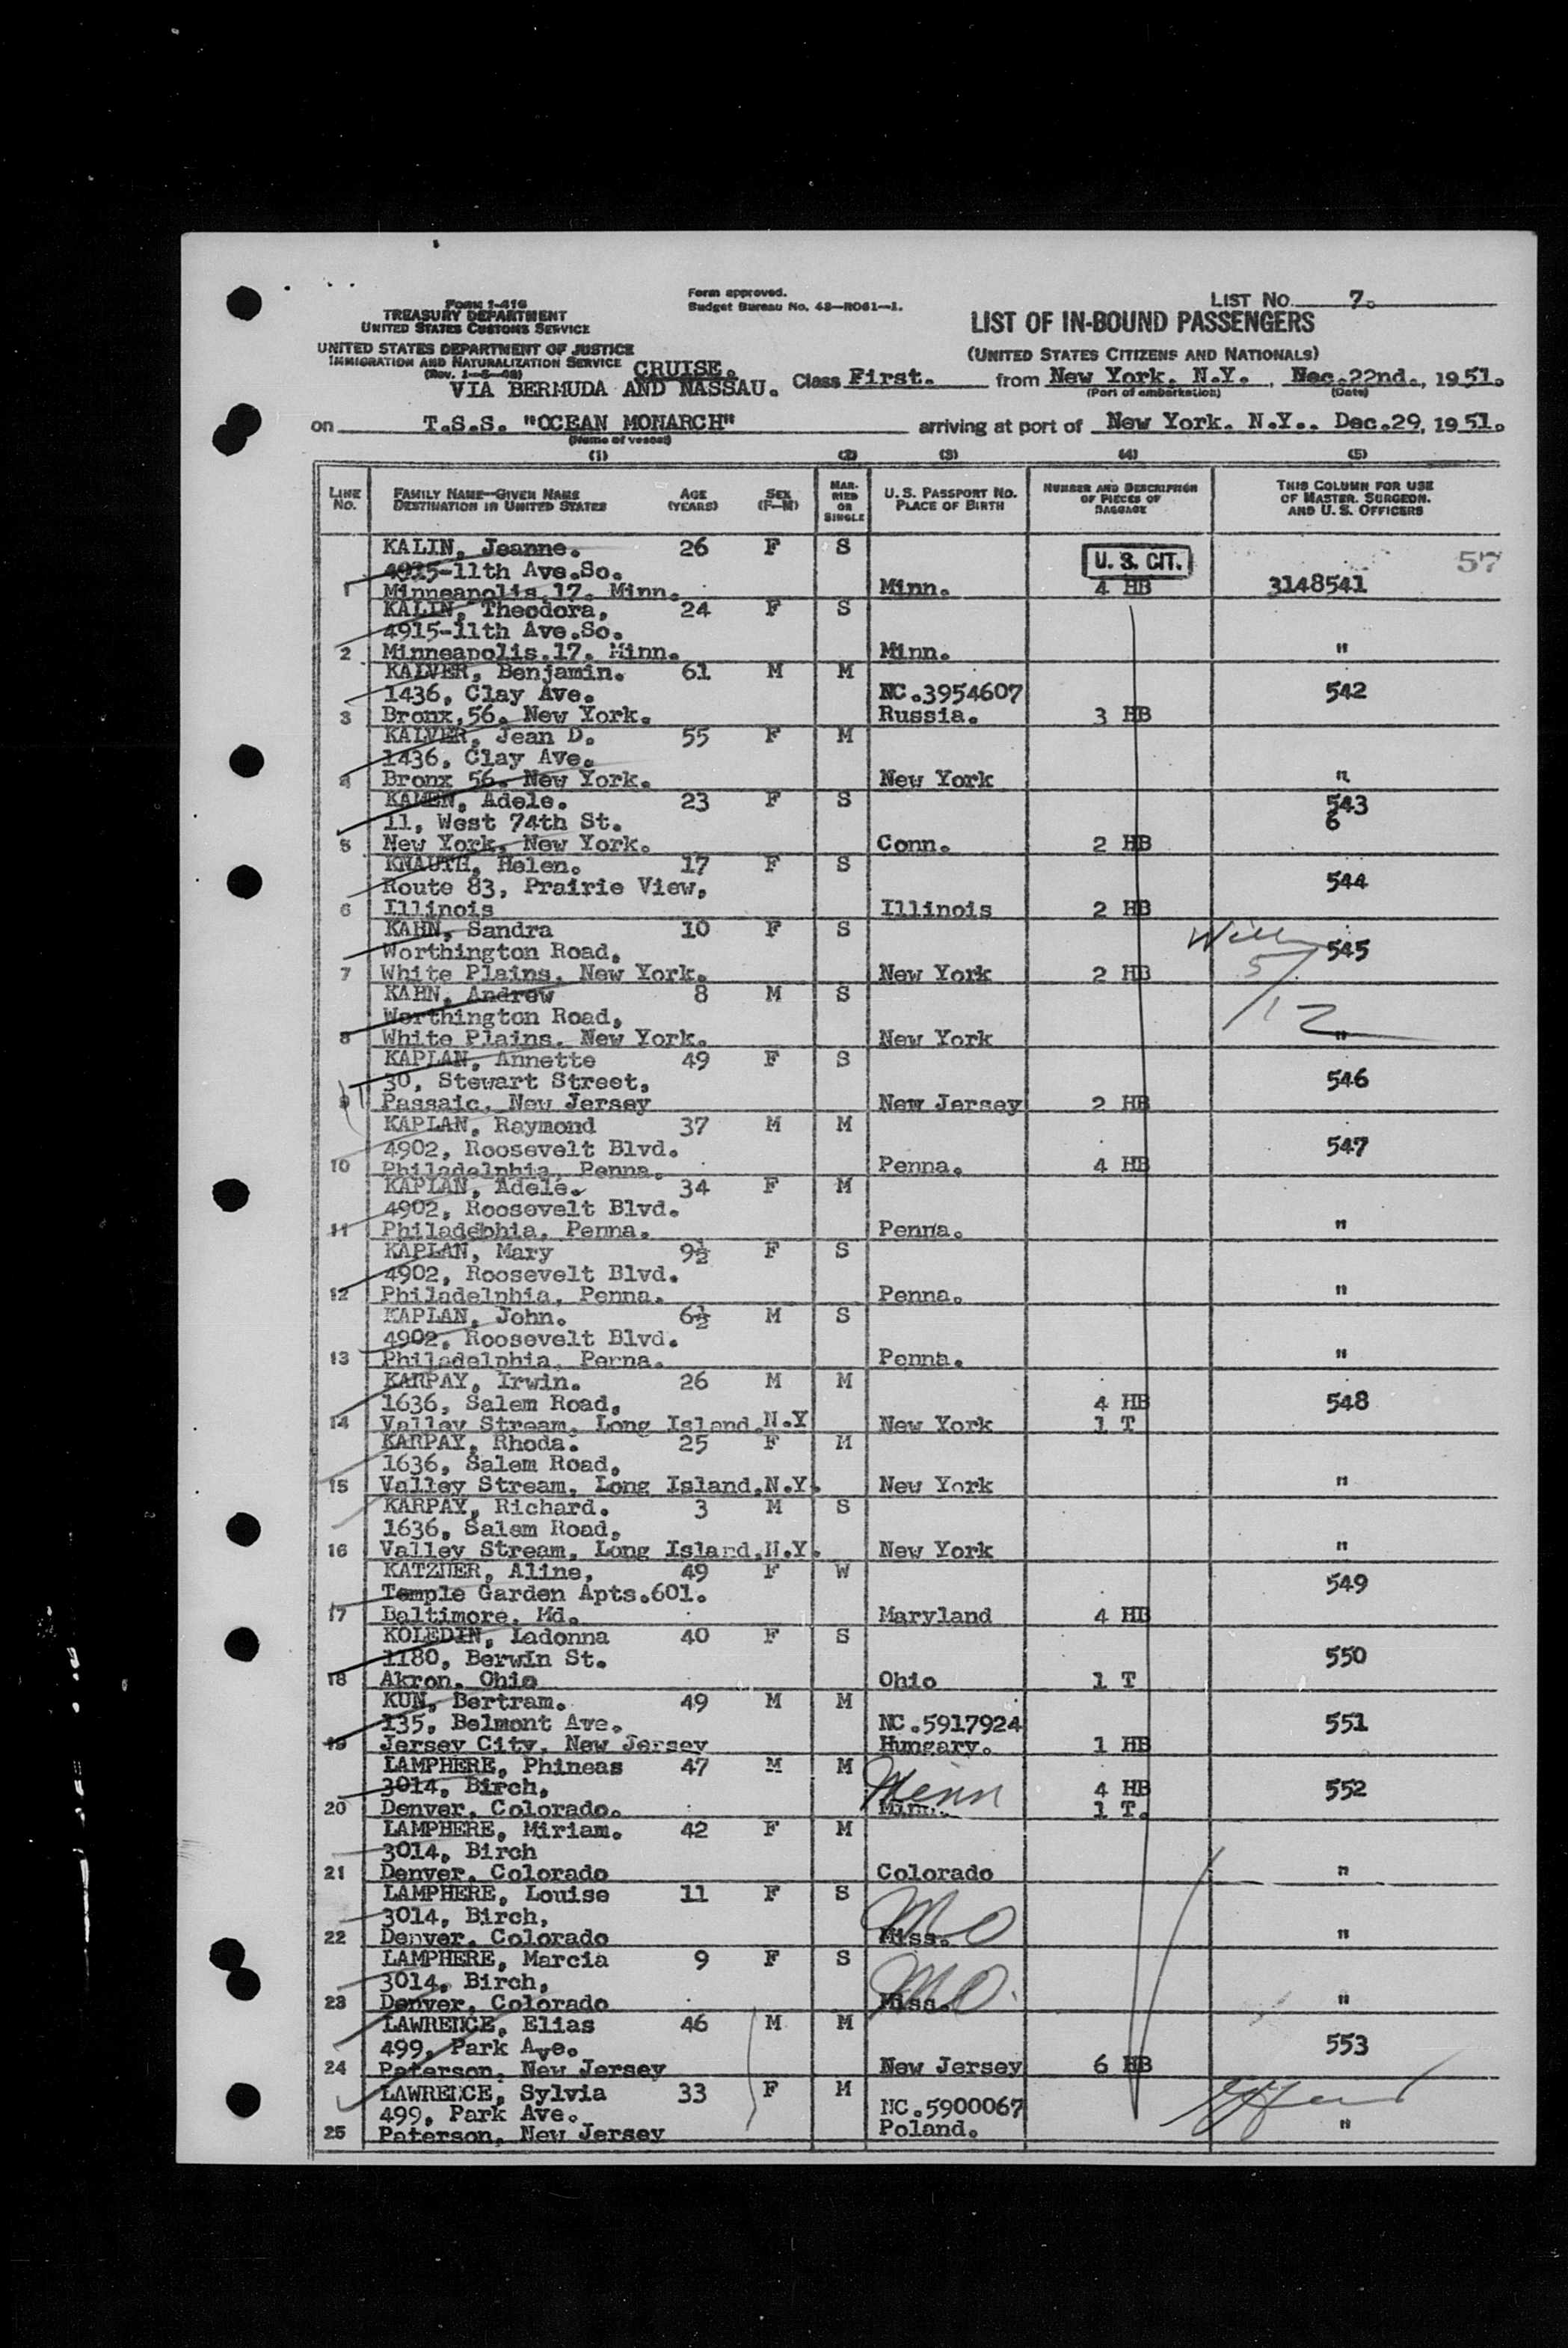 Form I-416
TREASURY DEPARTMENT
UNITED STATES CUSTOMS SERVICE
UNITED STATES DEPARTMENT OF JUSTICE
IMMIGRATION AND NATURALIZATION SERVICE
Form approved.
Budget Bureau No. 43—R061—1.
LIST NO. 7.
LIST OF IN-BOUND PASSENGERS
(UNITED STATES CITIZENS AND NATIONALS)
CRUISE.
VIA BERMUDA AND NASSAU. Class First. from New York. N.Y., Dec.22nd., 1951.
(Port of embarkation) (Date)
on T.S.S. "OCEAN MONARCH" arriving at port of New York. N.Y.. Dec.29, 1951.
(Name of vessel)
(1) (2) (3) (4) (5)
LINE NO. FAMILY NAME—GIVEN NAME DESTINATION IN UNITED STATES AGE (YEARS) SEX (F—M) MARRIED OR SINGLE U. S. PASSPORT NO. PLACE OF BIRTH NUMBER AND DESCRIPTION OF PIECES OF BAGGAGE THIS COLUMN FOR USE OF MASTER, SURGEON, AND U. S. OFFICERS
KALIN, Jeanne. 26 F S
4915-11th Ave.So. U. S. CIT. 57
1 Minneapolis.17. Minn. Minn. 4 HB 3148541
KALIN, Theodora, 24 F S
4915-11th Ave.So.
2 Minneapolis.17. Minn. Minn. "
KALVER, Benjamin. 61 M M
1436, Clay Ave. NC.3954607 542
3 Bronx,56. New York. Russia. 3 HB
KALVER, Jean D. 55 F M
1436, Clay Ave.
4 Bronx 56. New York. New York "
KAMEN, Adele. 23 F S 543
11, West 74th St. 6
5 New York, New York. Conn. 2 HB
KNAUTH, Helen. 17 F S
Route 83, Prairie View, 544
6 Illinois Illinois 2 HB
KAHN, Sandra 10 F S
Worthington Road, 545
7 White Plains, New York. New York 2 HB 5/12
KAHN, Andrew 8 M S
Worthington Road,
8 White Plains, New York. New York "
KAPLAN, Annette 49 F S
30, Stewart Street, 546
9 Passaic, New Jersey New Jersey 2 HB
KAPLAN, Raymond 37 M M
4902, Roosevelt Blvd. 547
10 Philadelphia, Penna. Penna. 4 HB
KAPLAN, Adele. 34 F M
4902, Roosevelt Blvd.
11 Philadebhia, Penna. Penna. "
KAPLAN, Mary 9½ F S
4902, Roosevelt Blvd.
12 Philadelphia, Penna. Penna. "
KAPLAN, John. 6½ M S
4902, Roosevelt Blvd.
13 Philadelphia, Penna. Penna. "
KARPAY, Irwin. 26 M M
1636, Salem Road, 4 HB 548
14 Valley Stream, Long Island.N.Y New York 1 T
KARPAY, Rhoda. 25 F M
1636, Salem Road,
15 Valley Stream, Long Island.N.Y. New York "
KARPAY, Richard. 3 M S
1636, Salem Road,
16 Valley Stream, Long Island.N.Y. New York "
KATZNER, Aline, 49 F W
Temple Garden Apts.601. 549
17 Baltimore, Md. Maryland 4 HB
KOLEDIN, Ladonna 40 F S
1180, Berwin St. 550
18 Akron, Ohio Ohio 1 T
KUN, Bertram. 49 M M
135, Belmont Ave. NC.5917924 551
19 Jersey City, New Jersey Hungary. 1 HB
LAMPHERE, Phineas 47 M M
3014, Birch, Minn 4 HB 552
20 Denver, Colorado. 1 T.
LAMPHERE, Miriam. 42 F M
3014, Birch
21 Denver, Colorado Colorado "
LAMPHERE, Louise 11 F S
3014, Birch, MO
22 Denver, Colorado Miss. "
LAMPHERE, Marcia 9 F S
3014, Birch, MO.
23 Denver, Colorado Miss. "
LAWRENCE, Elias 46 M M
499, Park Ave. 553
24 Paterson, New Jersey New Jersey 6 HB
LAWRENCE, Sylvia 33 F M
499, Park Ave. NC.5900067
25 Paterson, New Jersey Poland. "